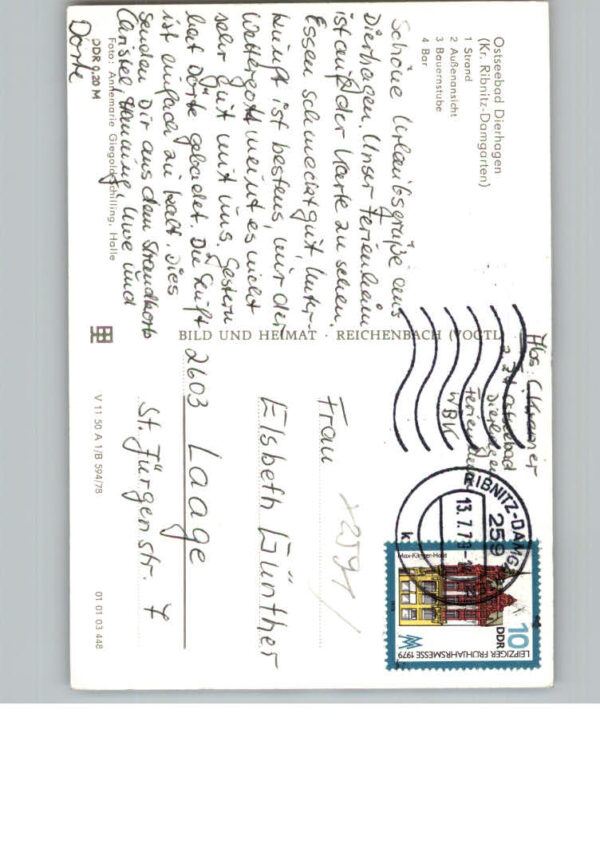 Ostseebad Dierhagen
(Kr. Ribnitz-Damgarten)
1 Strand
2 Außenansicht
3 Bauernstube
4 Bar
Schöne Urlaubsgrüße aus
Dierhagen. Unser Ferienheim
ist auf der Karte zu sehen.
Essen schmeckt gut, Unter-
kunft ist bestens, nur der
Wettergott meint es nicht
sehr gut mit uns. Gestern
hat Dörte gebadet. Die Luft
ist einfach zu kalt. Dies
senden Dir aus dem Strandkorb
Christel Uwe und
Dörte
DDR 0,20 M
Foto: Annemarie Giegold-Schilling, Halle
BILD UND HEIMAT · REICHENBACH (VOGTL
V 11 50 A 1/B 594/78
01 01 03 448
Abs.
Ostseebad
Dierhagen
Ferienheim
WBK
RIBNITZ-DAMG
259
13.7.79
k
10
DDR
LEIPZIGER FRÜHJAHRSMESSE 1979
Max-Klinger-Haus
Frau
Elsbeth Günther
2603 Laage
St. Jürgenstr. 7